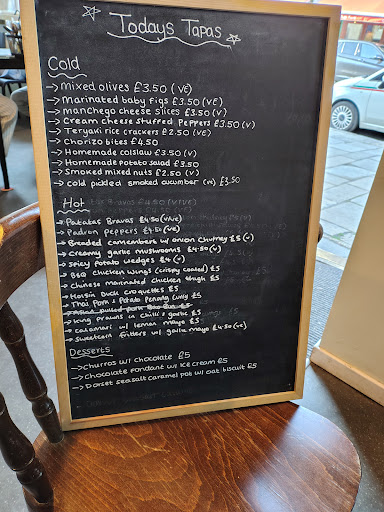 Todays Tapas
Cold
→ Mixed olives £3.50 (VE)
→ Marinated baby figs £3.50 (VE)
→ manchego cheese slices £3.50 (V)
→ Cream cheese stuffed peppers £3.50 (V)
→ Teryaki rice crackers £2.50 (VE)
→ Chorizo bites £4.50
→ Homemade colslaw £3.50 (V)
→ Homemade potato salad £3.50
→ Smoked mixed nuts £2.50 (V)
→ cold pickled smoked cucumber (VE) £3.50
Hot
→ Patatas Bravas £4.50 (V/VE)
→ Padron peppers £4.50 (VE)
→ Breaded camembert w/ onion chutney £5 (V)
→ Creamy garlic mushrooms £4.50 (V)
→ Spicy potato wedges £4 (V)
→ BBQ Chicken wings (crispy coated) £5
→ Chinese marinated chicken thigh £5
→ Hoisin Duck croquettes £5
→ Thai Pork & Potato Penang curry £5
→ pulled pork £5
→ king prawns in chilli & garlic £5
→ calamari w/ lemon mayo £5
→ sweetcorn fritters w/ garlic mayo £4.50 (VE)
Desserts
→ Churros w/ chocolate £5
→ Chocolate fondant w/ ice cream £5
→ Dorset seasalt caramel pot w/ oat biscuit £5